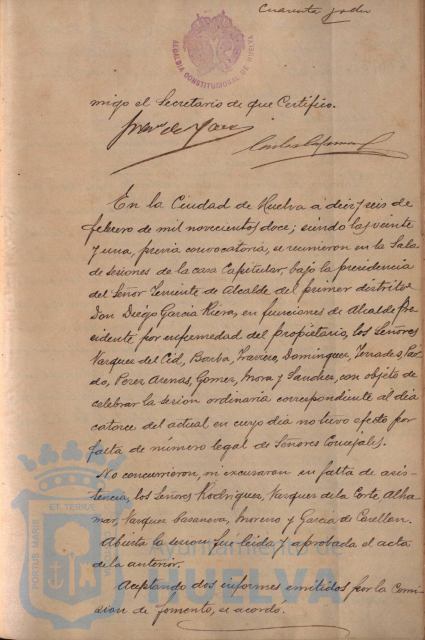 Cuarenta y dos
ALCALDIA CONSTITUCIONAL DE HUELVA
migo el Secretario de que Certifico.
En la Ciudad de Huelva a diez y seis de
febrero de mil novecientos doce; siendo las veinte
y una, previa convocatoria, se reunieron en la Sala
de sesiones de la casa Capitular, bajo la presidencia
del Señor Teniente de Alcalde del primer distrito
Don Diego Garcia Riera, en funciones de Alcalde Pre
sidente por enfermedad del propietario, los Señores
Vazquez del Cid, Borba, Travieso, Dominguez, Terrades,
do, Perez Arenas, Gomez, Mora y Sanchez, con objeto de
celebrar la sesion ordinaria correspondiente al dia
catorce del actual en cuyo dia no tuvo efecto por
falta de número legal de Señores Concejales.
No concurrieron, ni excusaron su falta de asis-
tencia, los Señores Rodriguez, Vazquez de la Corte, Alha
mar, Vazquez Casanova, Moreno y Garcia de
Abierta la sesion fue leida y aprobada el acta
de la anterior.
Aceptando dos informes emitidos por la Comi
sion de Fomento, se acordo.
PORTUS MARIS ET TERRAE
Ayuntamiento de
HUELVA